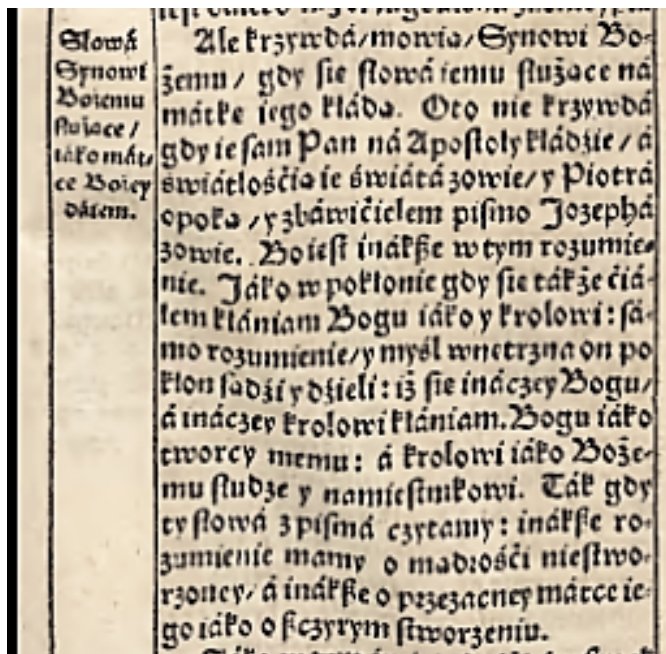 Słowá
Synowi
Bożemu
służące /
iáko mát,
ce Bożey
dátem.
Ale krzywdá / mowią / Synowi Bo-
żemu / gdy sie słowá iemu służące ná
mátkę iego kłádą. Oto nie krzywdá
gdy ie sam Pan ná Apostoły kłádźie / á
świátłośćią ie świátá zowie / y Piotrá
opoką / y zbáwićielem pismo Jozephá
zowie. Bo iest ináksze w tym rozumie-
nie. Jáko w pokłonie gdy sie tákże ćiá-
łem kłániam Bogu iáko y krolowi: sá-
mo rozumienie / y myśl wnętrzna on po
kłon sądźi y dźieli: iż sie ináczey Bogu /
á ináczey krolowi kłániam. Bogu iáko
tworcy memu: á krolowi iáko Boże-
mu słudze y namiestnikowi. Ták gdy
ty słowá z pismá czytamy: ináksze ro-
zumienie mamy o mądrośći niestwo-
rzoney / á ináksze o przezacney mátce ie-
go iáko o szczyrym stworzeniu.